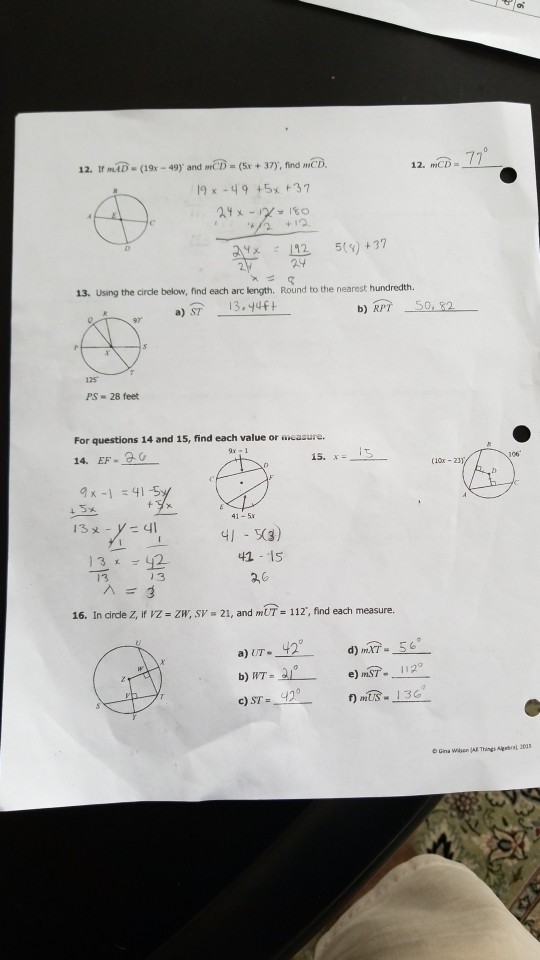 12. If mAD = (19x – 49)° and mCD = (5x + 37)°, find mCD.
12. mCD = 77°
19x - 49 + 5x + 37
24x - 12 = 180
+12 +12
24x = 192
24 24
5(8) + 37
x = 8
B
A
E
C
D
13. Using the circle below, find each arc length. Round to the nearest hundredth.
a) ST 13.44ft
b) RPT 50.82
R
Q
97°
P
S
X
T
125°
PS = 28 feet
For questions 14 and 15, find each value or measure.
14. EF = 26
9x – 1
C
D
F
E
41 – 5x
9x - 1 = 41 - 5x
+5x +5x
13x - 1 = 41
+1 1
13x = 42
13 13
x = 3
41 - 5(3)
41 - 15
26
15. x = 15
B
106°
(10x – 23)°
D
C
A
16. In circle Z, if VZ = ZW, SV = 21, and mUT = 112°, find each measure.
U
X
W
Z
V
T
S
Y
a) UT = 42°
b) WT = 21°
c) ST = 42°
d) mXT = 56°
e) mST = 112°
f) mUS = 136°
© Gina Wilson (All Things Algebra), 2015